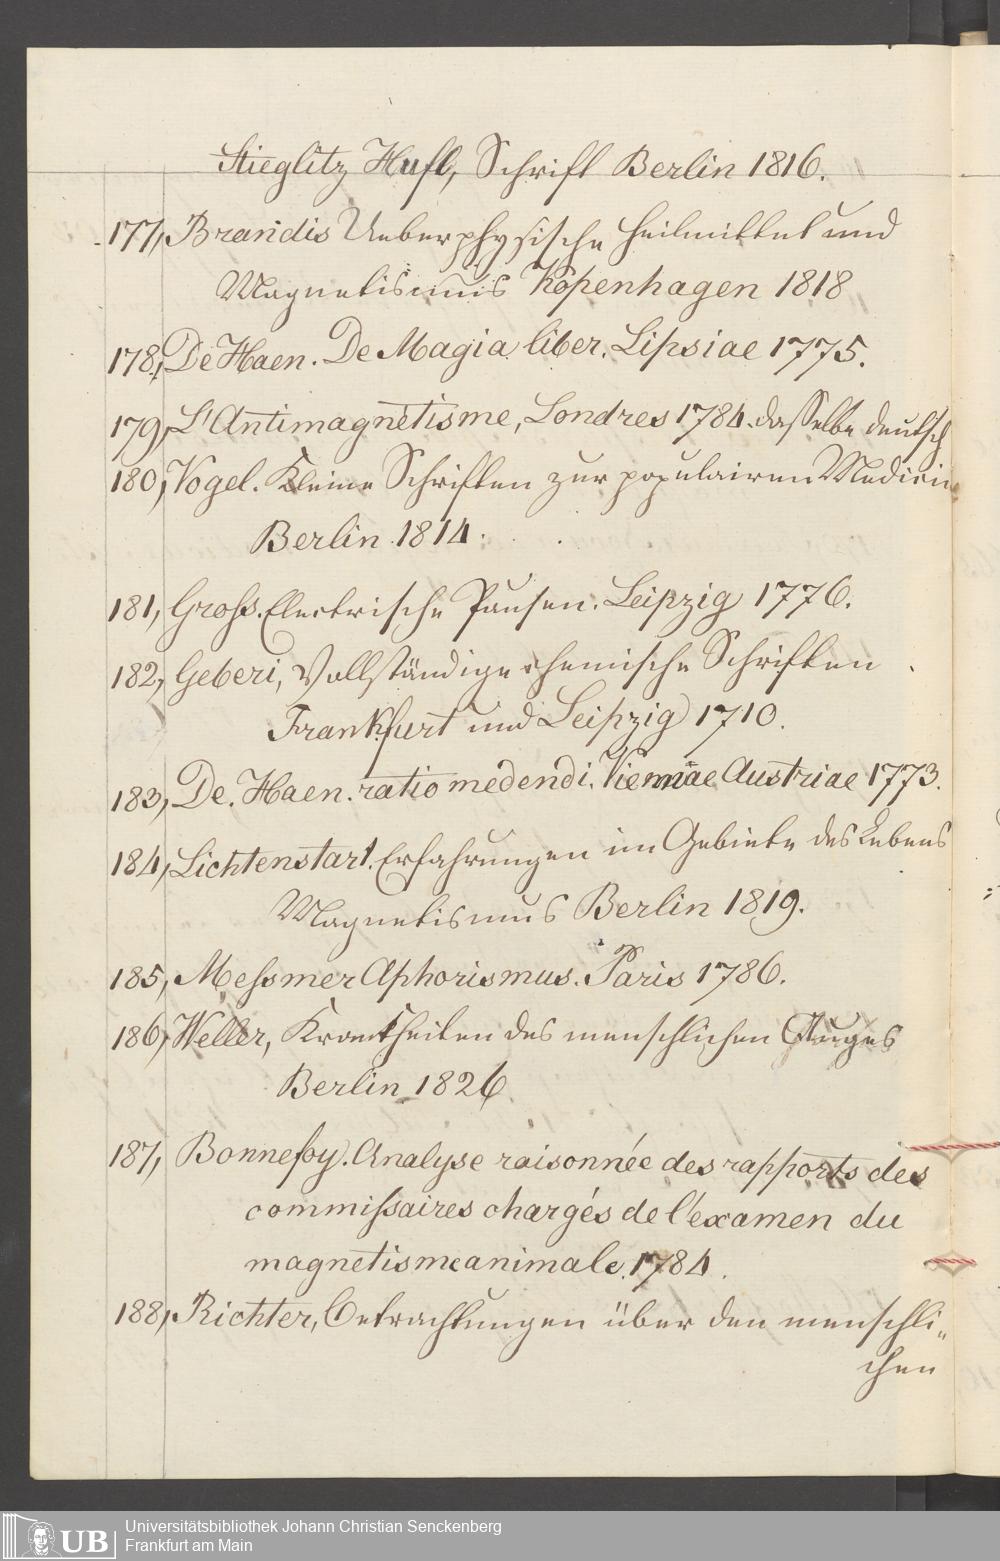 Stieglitz Hufl, Schrift Berlin 1816.
177, Brandis Ueber physische Heilmittel und
Magnetismus Kopenhagen 1818
178, De Haen. De Magia liber. Lipsiae 1775.
179, L'Antimagnetisme, Londres 1784. dasselbe deutsch
180, Vogel. Kleine Schriften zur populairen Medicin
Berlin 1814.
181, Groſs. Electrische Pausen. Leipzig 1776.
182, Geberi, Vollständige chemische Schriften
Frankfurt und Leipzig 1710.
183, De. Haen. ratio medendi. Viennae Austriae 1773.
184, Lichtenstart. Erfahrungen im Gebiete des Lebens
Magnetismus Berlin 1819.
185, Meſsmer Aphorismus. Paris 1786.
186, Weller, Krankheiten des menschlichen Auges
Berlin 1826.
187, Bonnefoy. Analyse raisonnée des rapports des
commiſsaires chargés de l'examen du
magnetisme animale. 1784.
188, Richter, Betrachtungen über den menschli„
chen
UB
Universitätsbibliothek Johann Christian Senckenberg
Frankfurt am Main